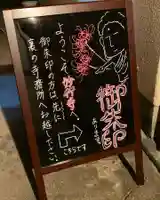 御朱印
あります。
ようこそ
御朱印の方は先に
裏の寺務所へお越し下さい。
こちらです